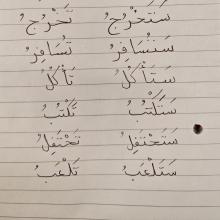 سَنَخْرُجُ نَخْرُجُ
سَنُسَافِرُ نُسَافِرُ
سَتَأْكُلُ تَأْكُلُ
سَتَكْتُبُ تَكْتُبُ
سَتَحْتَفِلُ تَحْتَفِلُ
سَتَلْعَبُ تَلْعَبُ